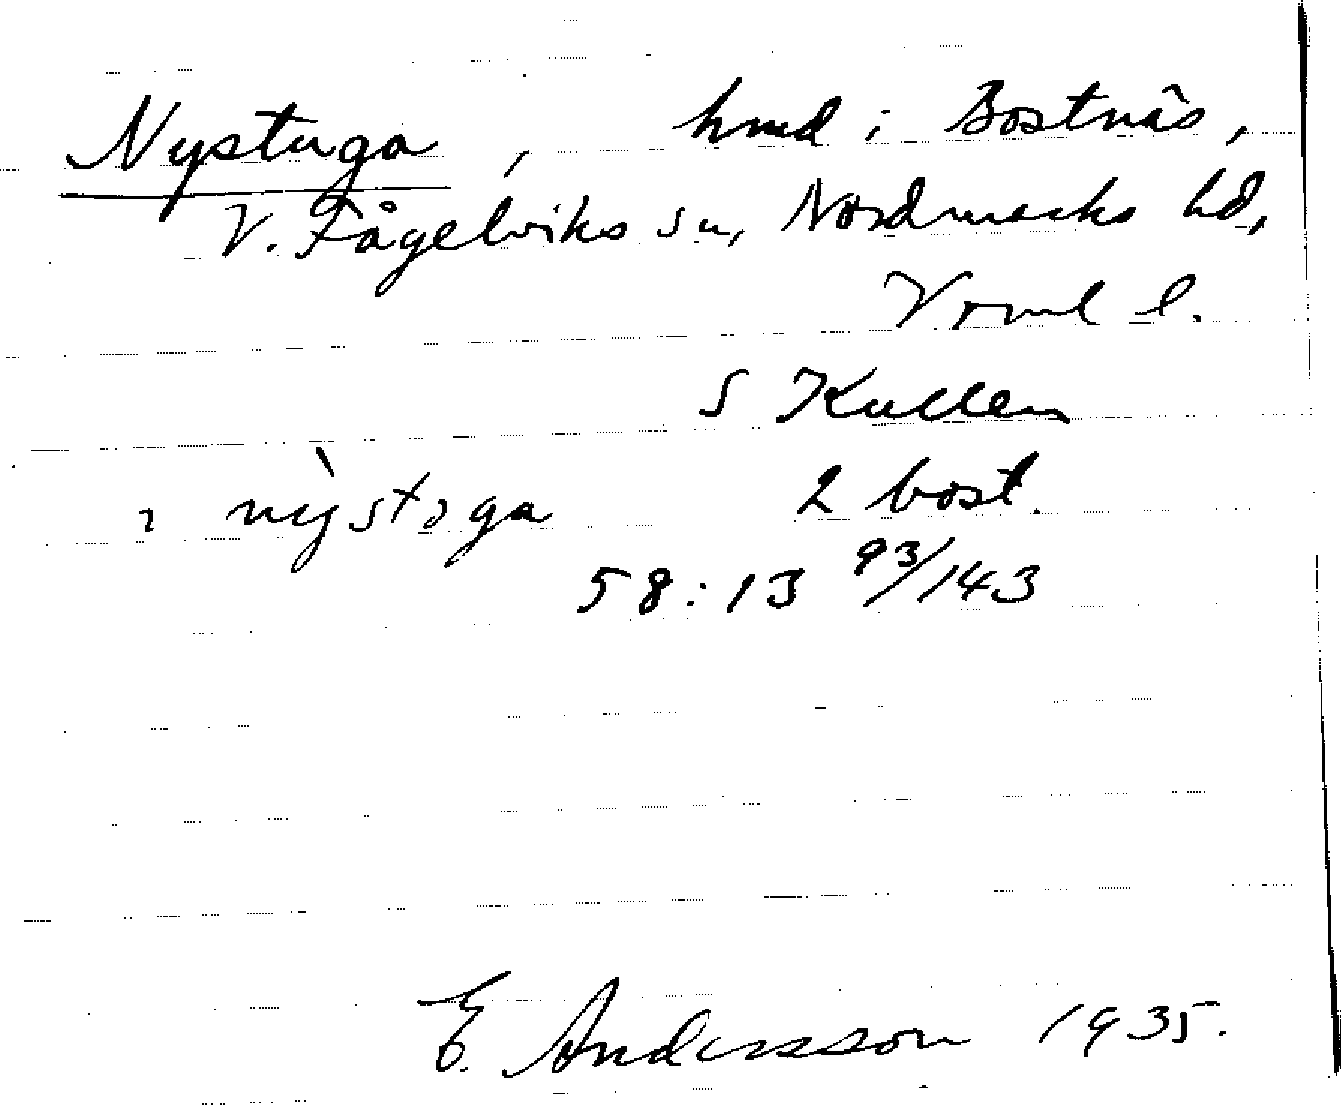 Nystuga, hmd i Bostnäs,
V. Fågelviks sn, Nordmarks hd,
Vrml l.
S Kullen
i nỳstoga 2 bost.
58:13 93/143
E. Andersson 1935.